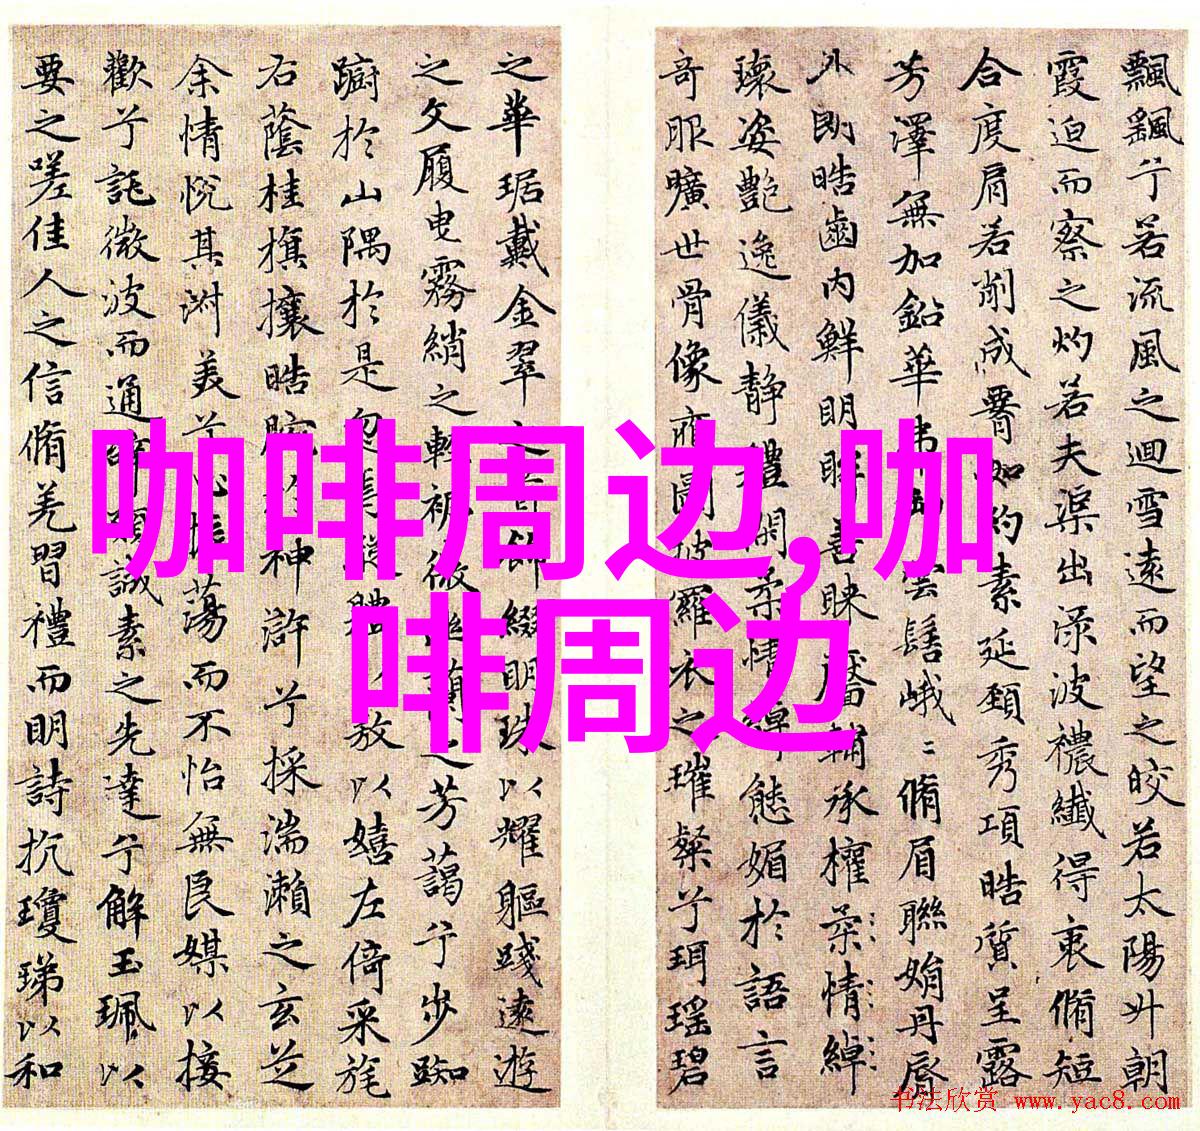 飄飖兮若流風之迴雪遠而望之皎若太陽升朝
霞迫而察之灼若夫渠出淥波襛纖得衷脩短
合度肩若削成 如約素延頸秀項皓質呈露
芳澤無加鉛華弗御雲髻峨〻脩眉聯娟丹脣
外朗皓齒內鮮明眸善睞靨輔承權柔情綽
瓌姿艷逸儀靜體閑柔情綽態媚於語言
奇服曠世骨像應圖披羅衣之璀粲兮珥瑤碧
之華琚戴金翠之首飾綴明珠以耀軀踐遠遊
之文履曳霧綃之輕裾微幽蘭之芳藹兮步踟
躕於山隅於是忽焉縱體 遨以嬉左倚采旄
右蔭桂旗攘皓腕於神滸兮採湍瀨之玄芝
余情悅其淑美兮心振蕩而不怡無良媒以接
歡兮託微波而通辭願誠素之先達兮解玉珮以
要之嗟佳人之信脩羌習禮而明詩抗瓊珶以和
咖啡周边,咖
啡周边
书法欣赏 www.yac8.com